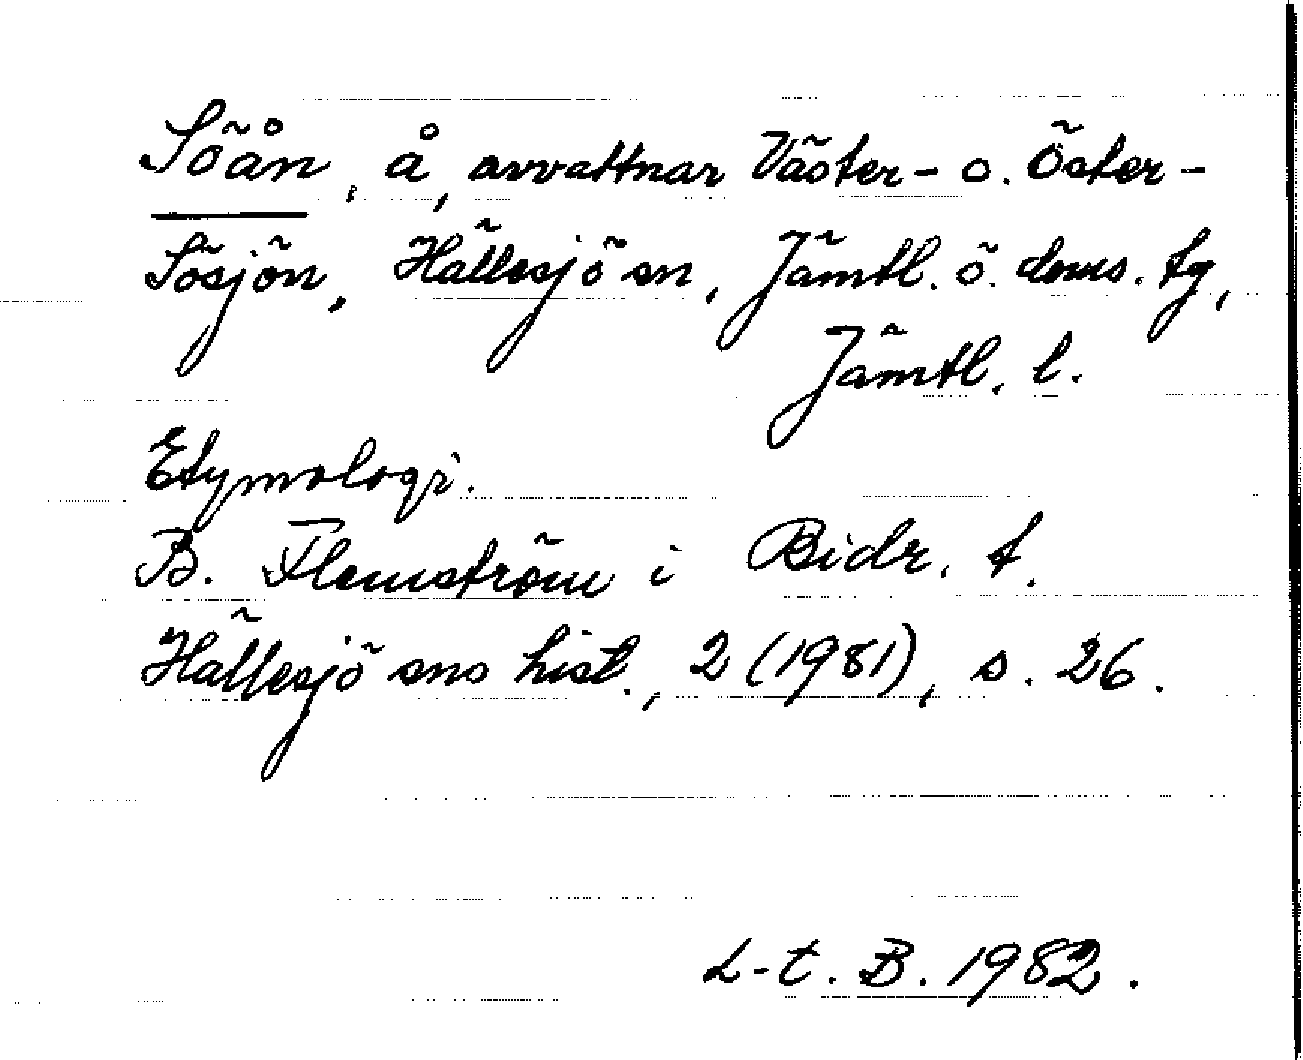 Söån, å, avvattnar Väster- o. Öster-
Sösjön, Hällesjö sn, Jämtl. ö. doms. tg,
Jämtl. l.
Etymologi.
B. Flemström i Bidr. t.
Hällesjö sns hist., 2 (1981), s. 26.
L-t. B. 1982.